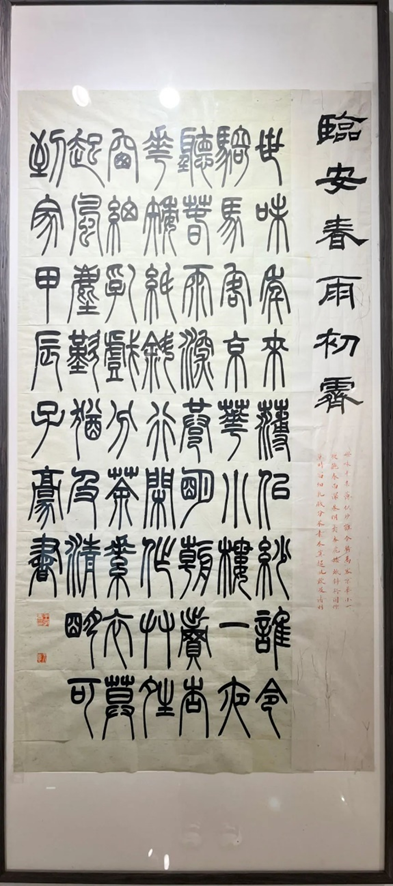 臨安春雨初霽
世味年來薄似紗誰令
騎馬客京華小樓一夜
聽春雨深巷明朝賣杏
花矮紙斜行閒作艸晴
窗細乳戲分茶素衣莫
起風塵歎猶及清明可
到家甲辰子豪書